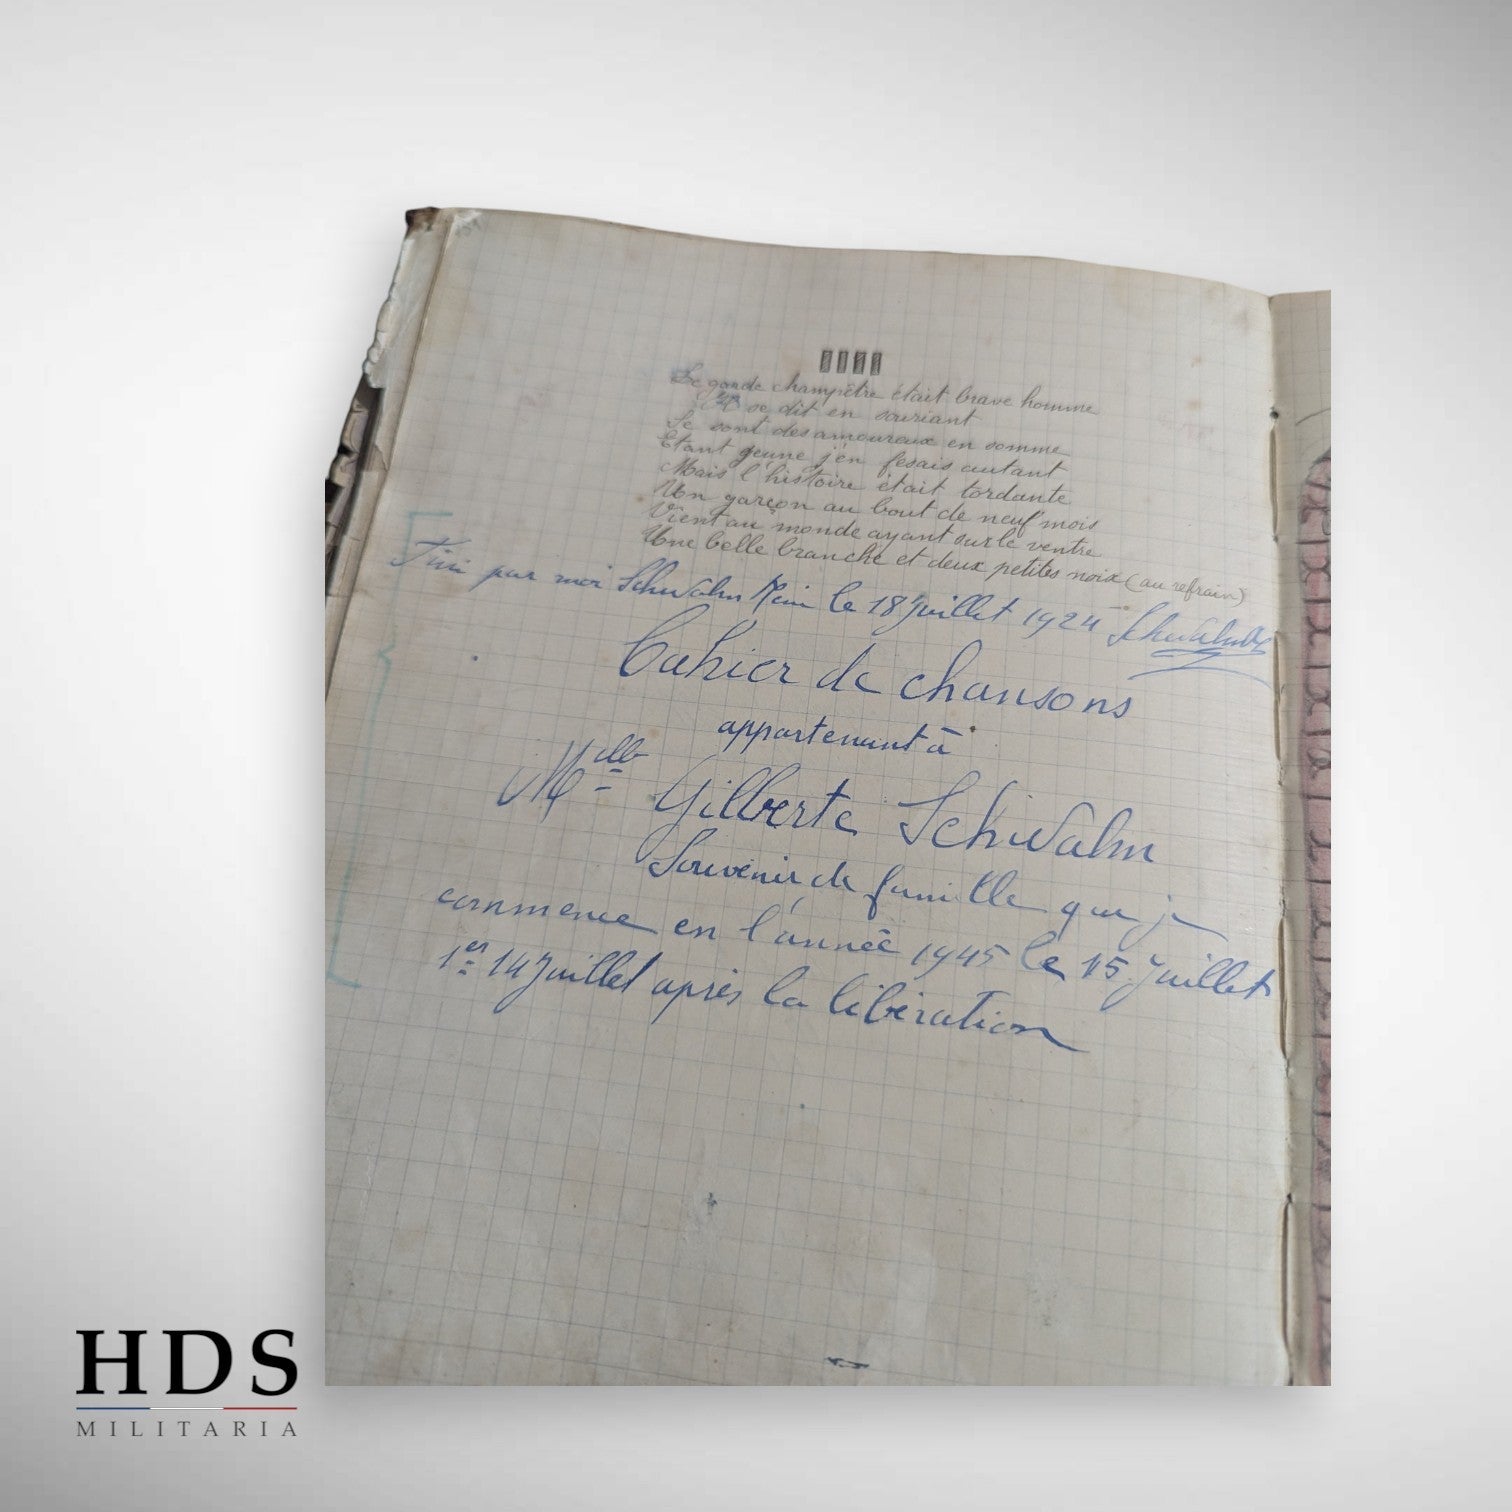 Le garde champêtre était brave homme
se dit en souriant
Se sont des amoureux en somme
Etant jeune j'en fesais autant
Mais l'histoire était tordante
Un garçon au bout de neuf mois
Vient au monde ayant sur le ventre
Une belle branche et deux petites noix (au refrain)
Fini par moi Schwalm le 18 Juillet 1924 Schwalm
Cahier de chansons
appartenant à
Mlle Gilberte Schwalm
Souvenir de famille que je
commence en l'année 1945 le 15 Juillet
1er 14 Juillet après la libération
HDS
MILITARIA